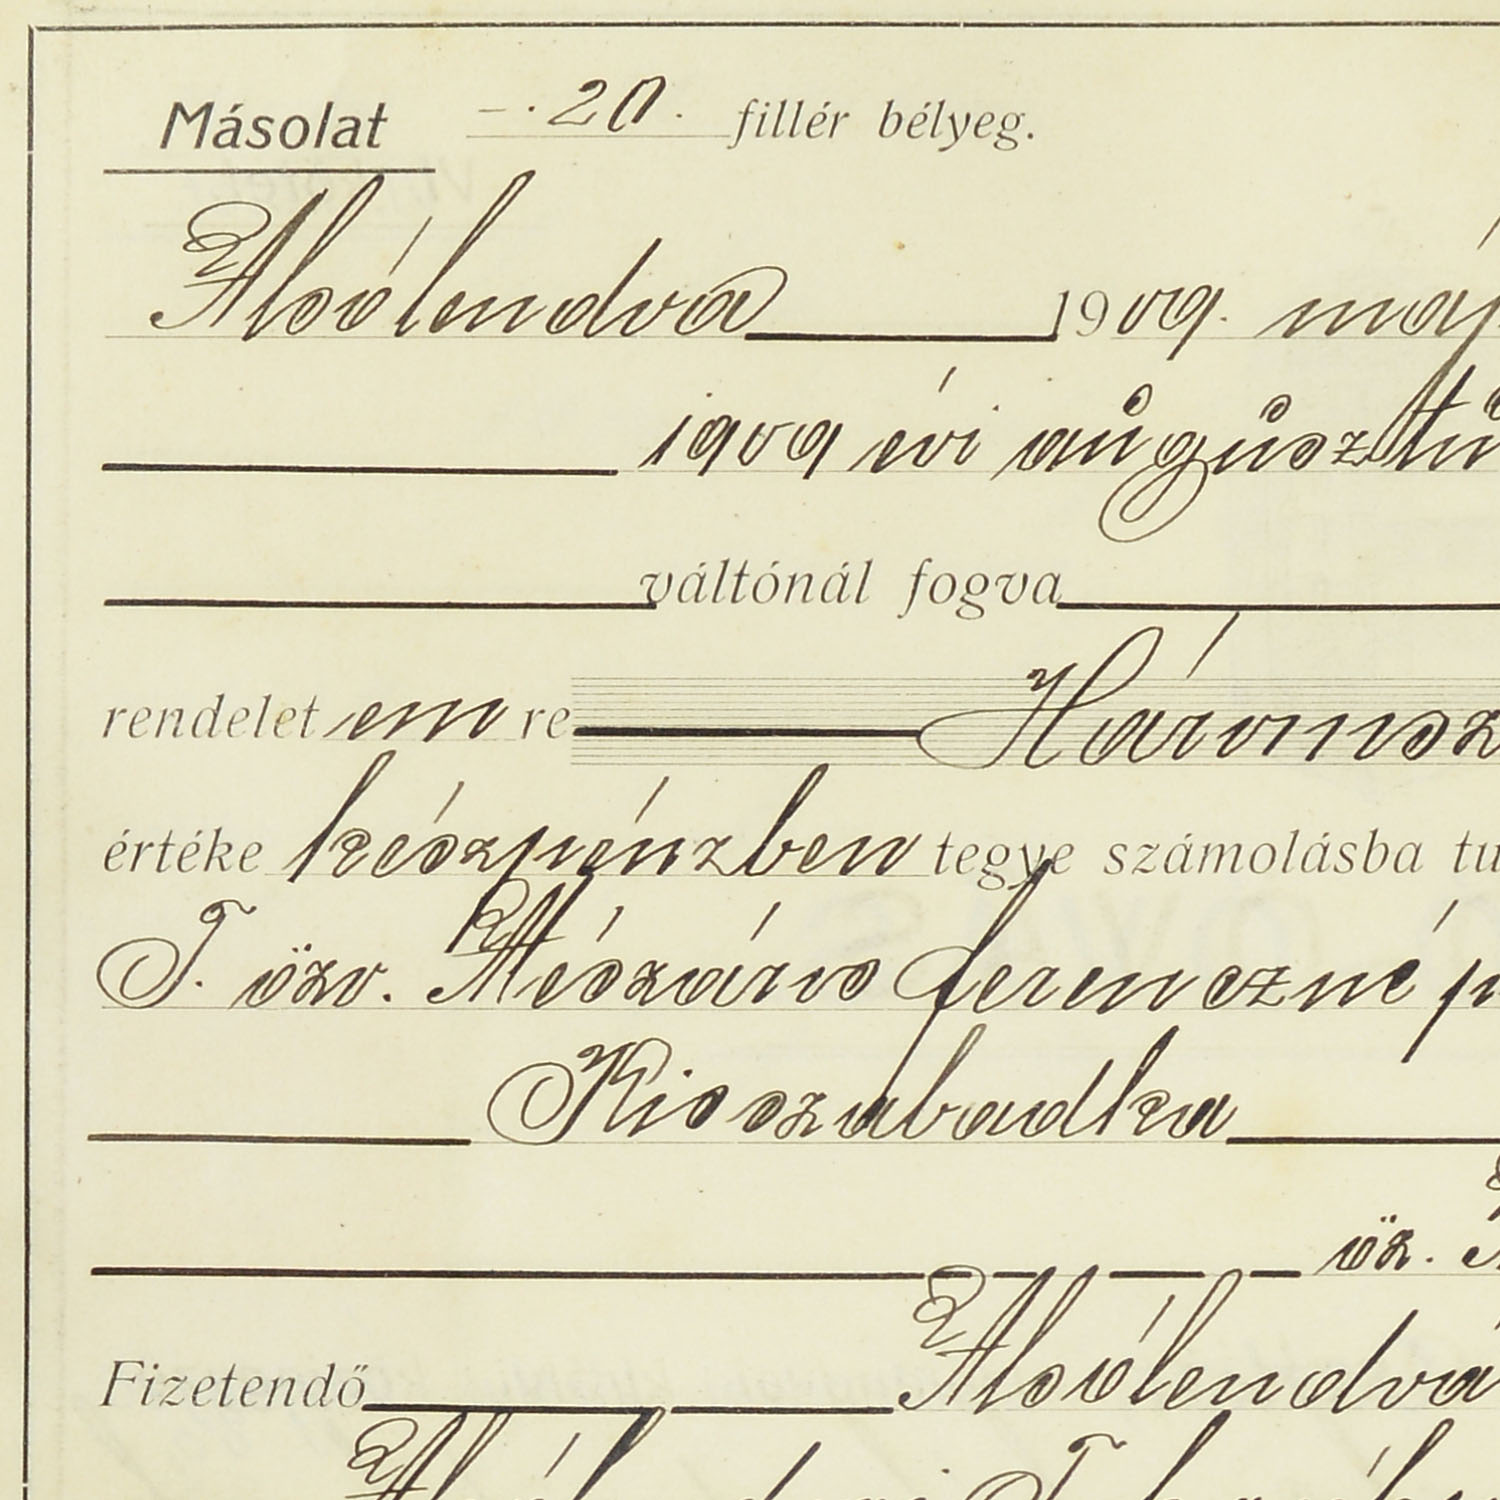 Másolat —.20. fillér bélyeg.
Alsólendva 1909. máj
1909 évi augusztu
váltónál fogva
rendelet em re Háromsz
értéke készpénzben tegye számolásba tu
T. özv. Mészáros Ferenczné
Kisszabadka
öz.
Fizetendő Alsólendvá